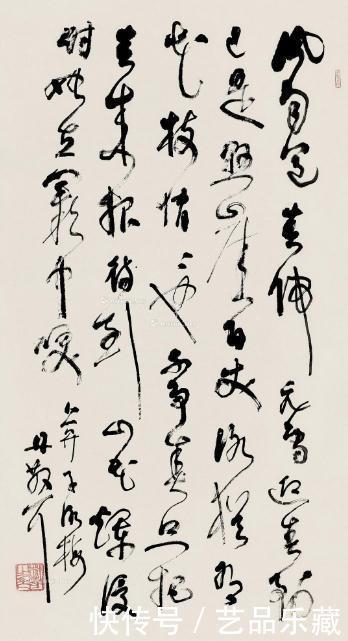 风雨送春归飞雪迎春到
已是悬崖百丈冰犹有
花枝俏〻也不争春只把
春来报待到山花烂漫
时她在丛中笑
卜算子咏梅
快传号 / 艺品乐藏